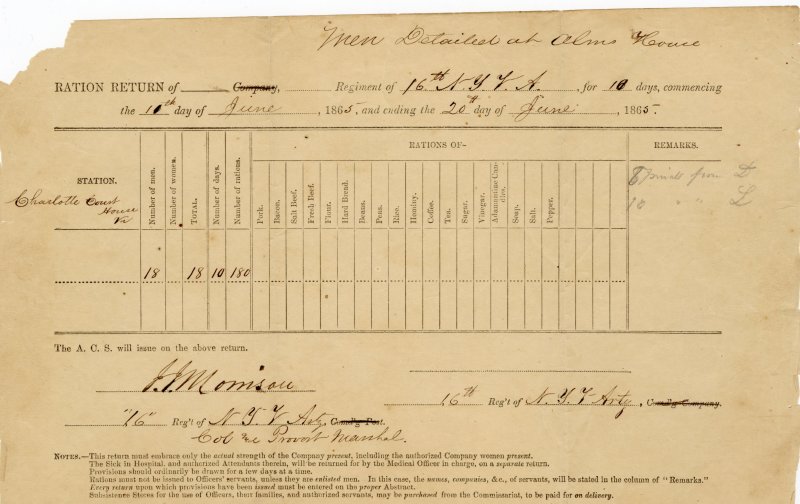 Men Detailed at Alms House
RATION RETURN of Company, Regiment of 16th N.Y.V.A. for 10 days, commencing
the 10th day of June, 1865, and ending the 20th day of June, 1865.
STATION.
Number of men.
Number of women.
TOTAL.
Number of days.
Number of rations.
RATIONS OF-
Pork.
Bacon.
Salt Beef.
Fresh Beef.
Flour.
Hard Bread.
Beans.
Peas.
Rice.
Hominy.
Coffee.
Tea.
Sugar.
Vinegar.
Adamantine Candles.
Soap.
Salt.
Pepper.
REMARKS.
Charlotte Court
House
Va
8 privates from D
10 " " L
18 18 10 180
The A. C. S. will issue on the above return.
J.J. Morrison
16th Reg't of N.Y.V Arty, Cmd'g Company.
"16" Reg't of N.Y.V Arty, Cmd'g Post.
Col Provost Marshal.
NOTES.—This return must embrace only the actual strength of the Company present, including the authorized Company women present.
The Sick in Hospital, and authorized Attendants therein, will be returned for by the Medical Officer in charge, on a separate return.
Provisions should ordinarily be drawn for a few days at a time.
Rations must not be issued to Officers' servants, unless they are enlisted men. In this case, the names, companies, &c., of servants, will be stated in the column of "Remarks."
Every return upon which provisions have been issued must be entered on the proper Abstract.
Subsistence Stores for the use of Officers, their families, and authorized servants, may be purchased from the Commissariat, to be paid for on delivery.